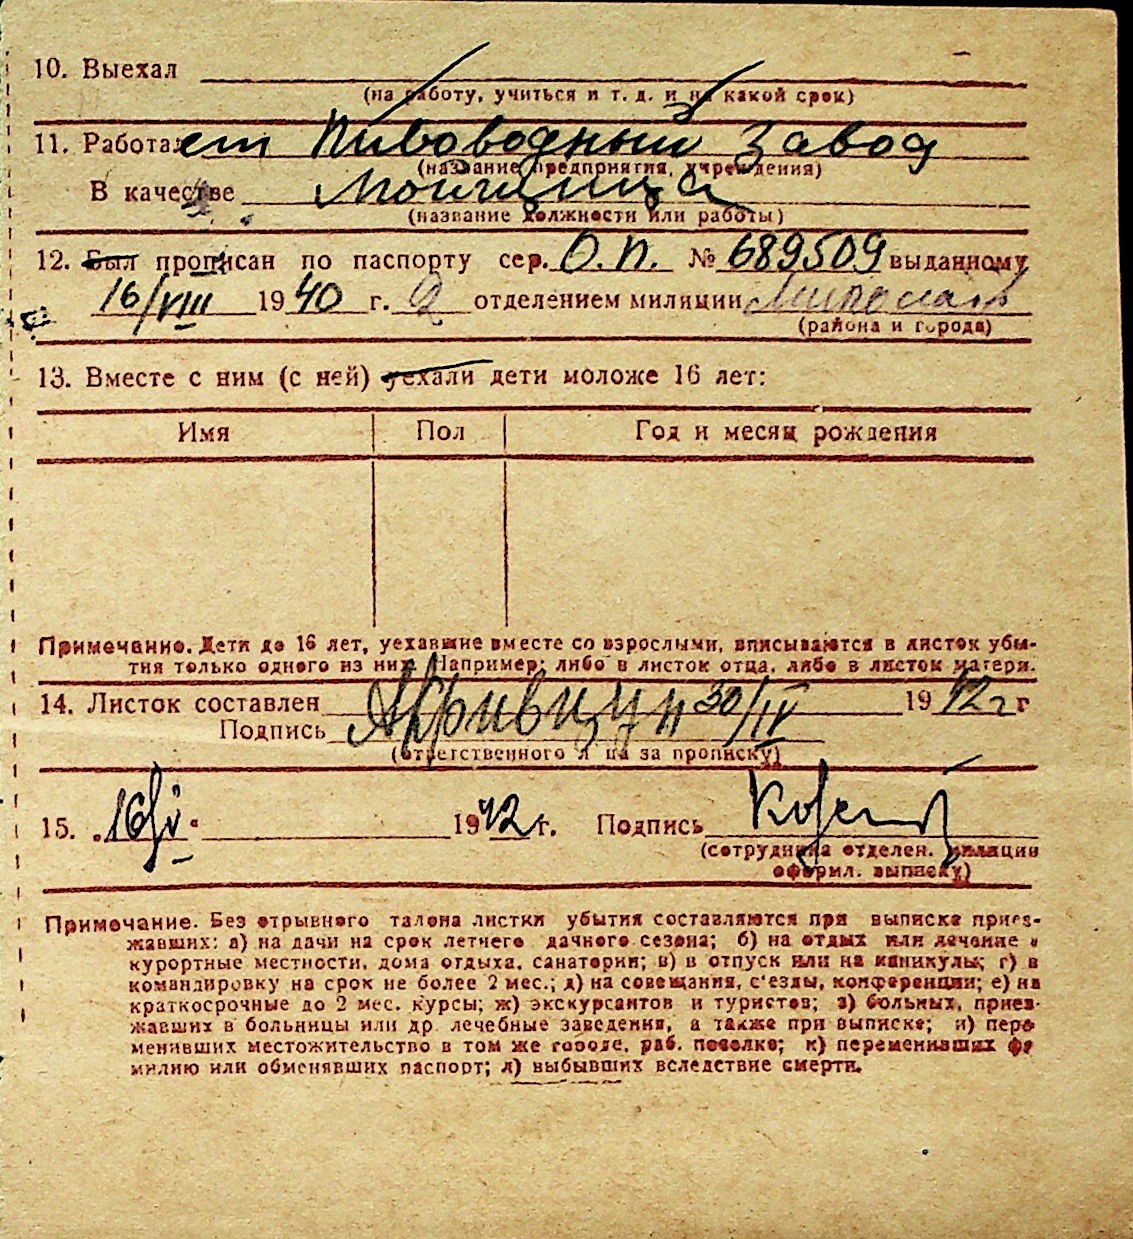 10. Выехал
(на работу, учиться и т. д. и на какой срок)
11. Работает Пивоводный завод
(название предприятия, учреждения)
В качестве Мойщица
(название должности или работы)
12. Был прописан по паспорту сер. О.П. № 689509 выданному
16/VIII 1940 г. 2 отделением милиции
(района и города)
13. Вместе с ним (с ней) уехали дети моложе 16 лет:
Имя Пол Год и месяц рождения
Примечание. Дети до 16 лет, уехавшие вместе со взрослыми, вписываются в листок убы-
тия только одного из них. Например: либо в листок отца, либо в листок матери.
14. Листок составлен 30/IV 1942 г
Подпись
(ответственного лица за прописку)
15. „16/V“ 1942 г. Подпись
(сотрудника отделен. милиции
оформл. выписку)
Примечание. Без отрывного талона листки убытия составляются при выписке приез-
жавших: а) на дачи на срок летнего дачного сезона; б) на отдых или лечение в
курортные местности, дома отдыха, санатории; в) в отпуск или на каникулы; г) в
командировку на срок не более 2 мес.; д) на совещания, с'езды, конференции; е) на
краткосрочные до 2 мес. курсы; ж) экскурсантов и туристов; з) больных, приез-
жавших в больницы или др. лечебные заведения, а также при выписке; и) пере
менивших местожительство в том же городе, раб. поселке; к) переменивших фа
милию или обменявших паспорт; л) выбывших вследствие смерти.